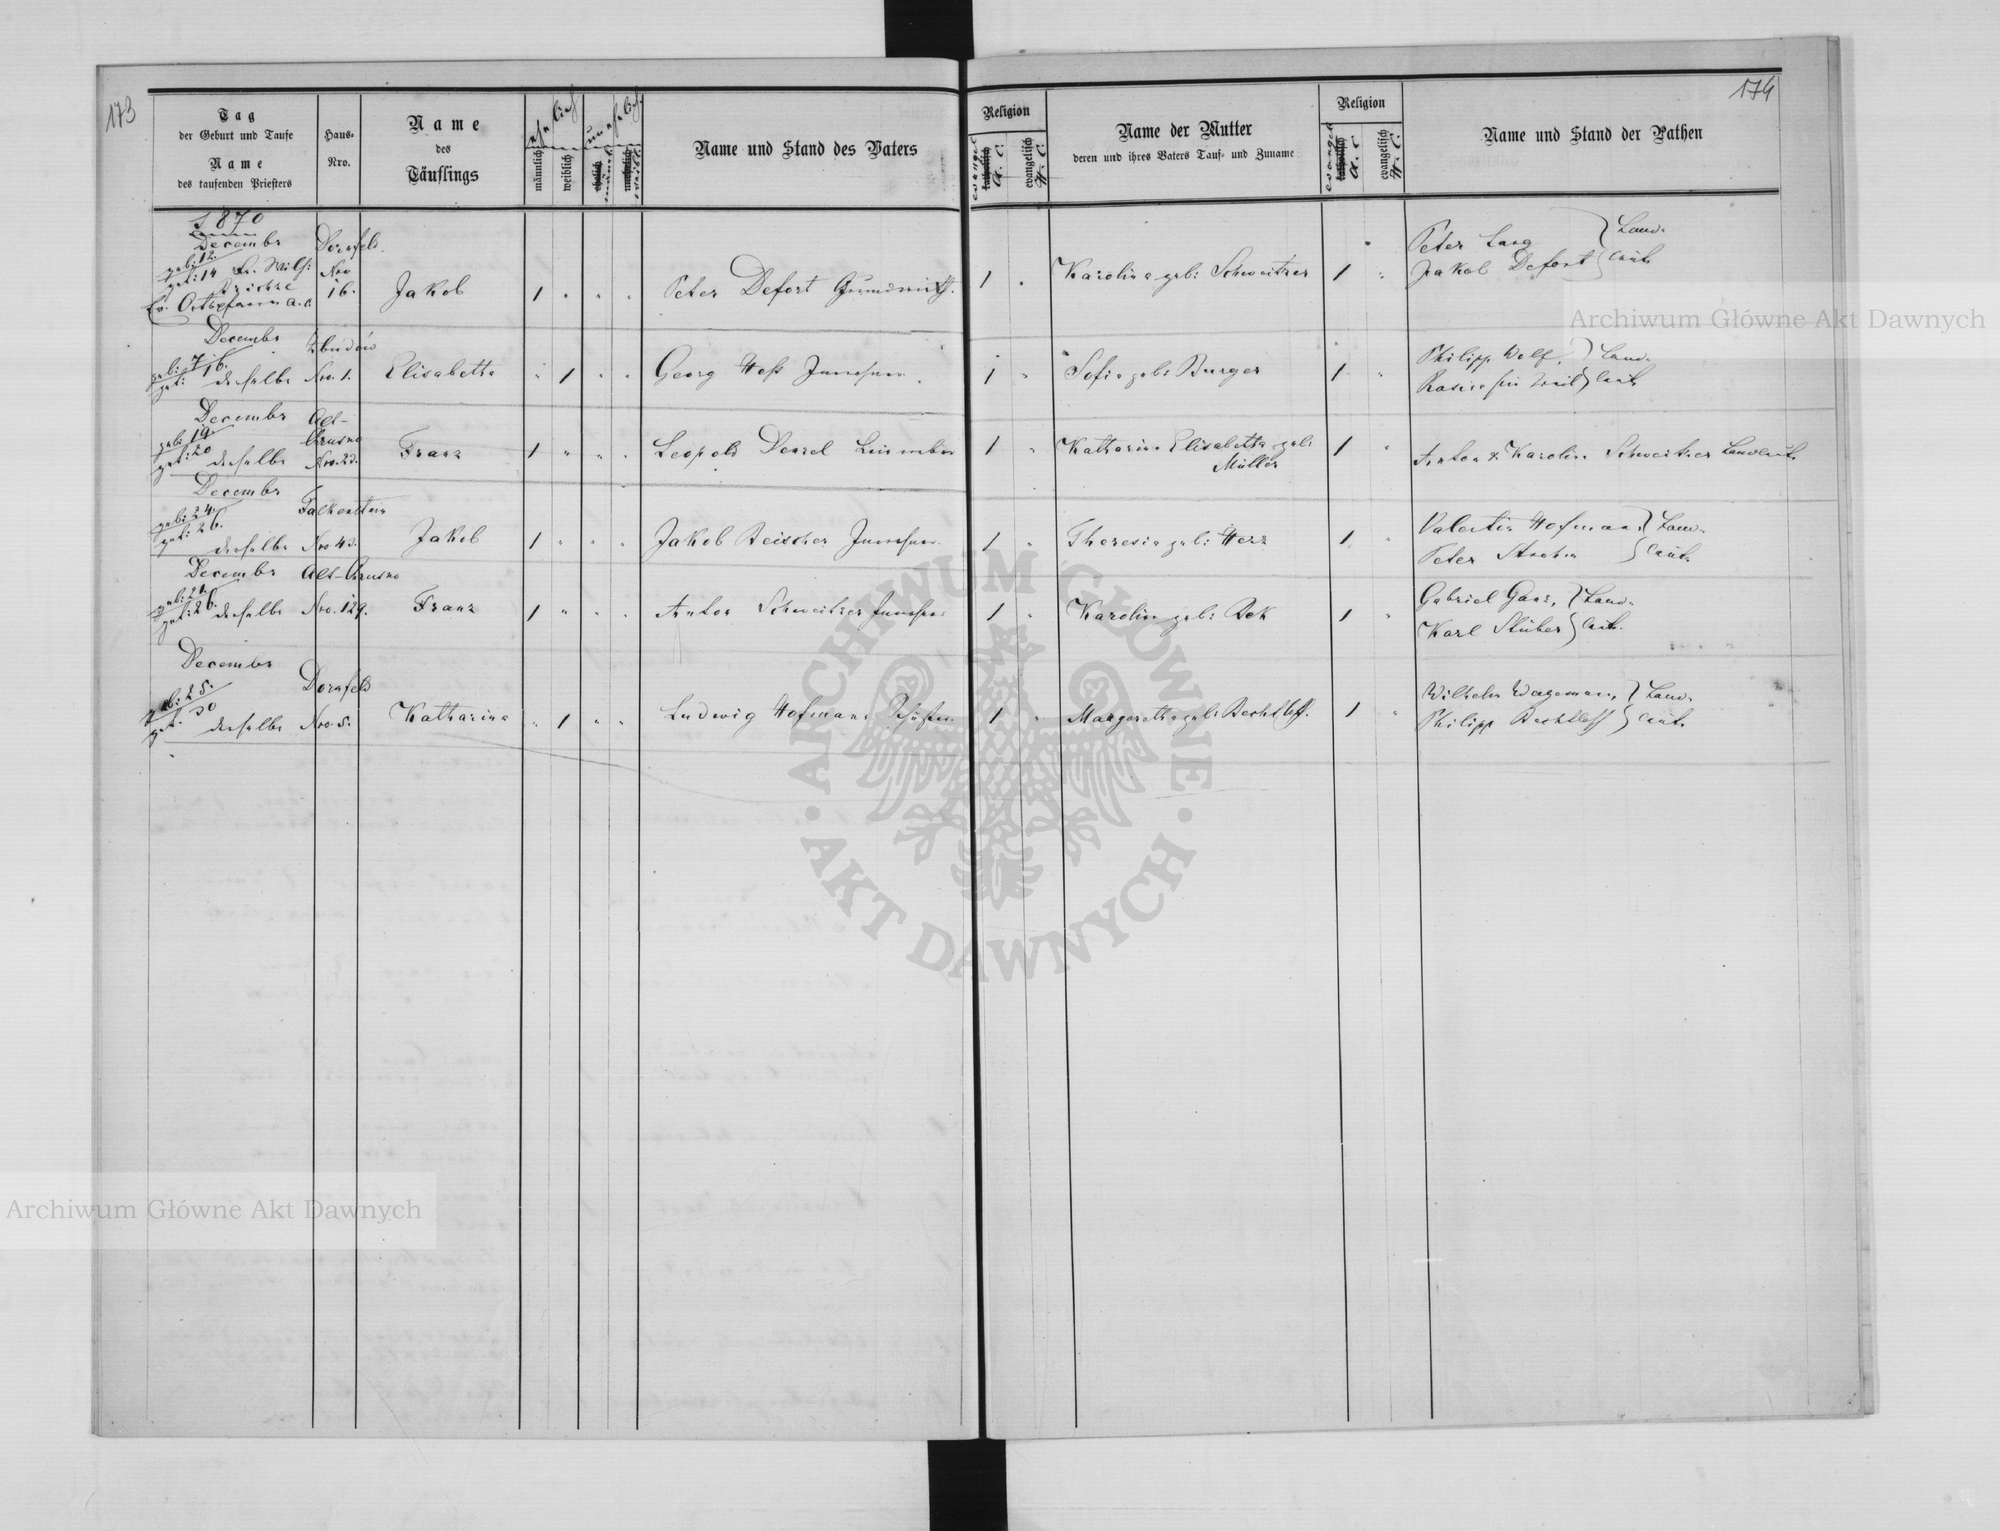 173
174
Tag
der Geburt und Taufe
Name
des taufenden Priesters
Haus-
Nro.
Name
des
Täuflings
ehelich
unehelich
männlich
weiblich
Name und Stand des Vaters
Religion
evangel
A. C.
evangelisch
H. C.
Name der Mutter
deren und ihres Vaters Tauf- und Zuname
Religion
evangel
A. C.
evangelisch
H. C.
Name und Stand der Pathen
1870
Decembr
geb: 12.
get: 14
Ev. Ortspfarrer A. C.
Dornfeld
Nro
16.
Jakob
1
Peter Defort Grundwirth.
1
Karolina geb: Schweitzer
1
Peter Lang
Jakob Defort
Land-
leute
Decembr
geb: 7
get: 16.
derselbe
Nro. 1.
Elisabetha
1
Georg Heß
1
Sofia geb: Burger
1
Philipp Wolf,
Rosina sein Weib
Land-
leute
Decembr
geb: 19.
get: 20
derselbe
Alt-
Chrusno
Nro. 23.
Franz
1
Leopold Denzel
1
Katharina Elisabetha geb:
Müller
1
Anton & Karolina Schweitzer Landleute
Decembr
geb: 24.
get: 26.
derselbe
Falkenstein
Nro 43.
Jakob
1
Jakob Beischer
1
Theresia geb: Herz
1
Valentin Hofmann,
Peter
Land-
leute
Decembr
get: 26.
derselbe
Alt-Chrusno
Nro. 129.
Franz
1
Anton Schweitzer
1
Karolina geb: Bek
1
Gabriel Ganz,
Karl Stüber
Land-
leute.
Decembr
geb: 25.
get: 30
derselbe
Dornfeld
Nro. 5.
Katharina
1
Ludwig Hofmann
1
Margaretha geb: Bechtloff.
1
Wilhelm Wagemann,
Philipp Bechtloff
Land-
leute
Archiwum Główne Akt Dawnych
ARCHIWUM GŁÓWNE
· AKT DAWNYCH ·
Archiwum Główne Akt Dawnych